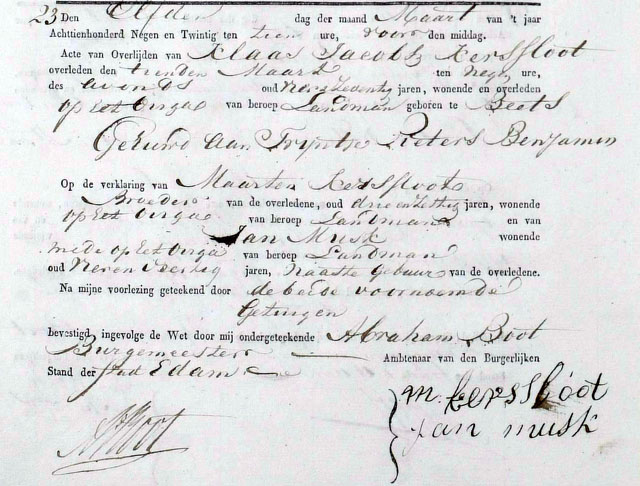 23 Den Elfden dag der maand Maart van 't jaar
Achttienhonderd Negen en Twintig ten tien ure, voor den middag.
Acte van Overlijden van Klaas Jacobsz Kerssloot
overleden den tienden Maart ten negen ure,
des avonds oud jaren, wonende en overleden
op van beroep Landman geboren te Beets
Getrúwd aan Tryntje Pieters Benjamin
Op de verklaring van Maarten Kerssloot
Broeder van de overledene, oud drie en zestig jaren, wonende
op van beroep Landman en van
Jan Musk wonende
mede op van beroep Landman
oud Neven Veertig jaren, Naaste Gebuur van de overledene.
Na mijne voorlezing geteekend door de beide voornoemde
Getuigen
bevestigd ingevolge de Wet door mij ondergeteekende Abraham Boot
Burgemeester Ambtenaar van den Burgerlijken
Stand der Stad Edam
m. kerssloot
jan musk
ABoot